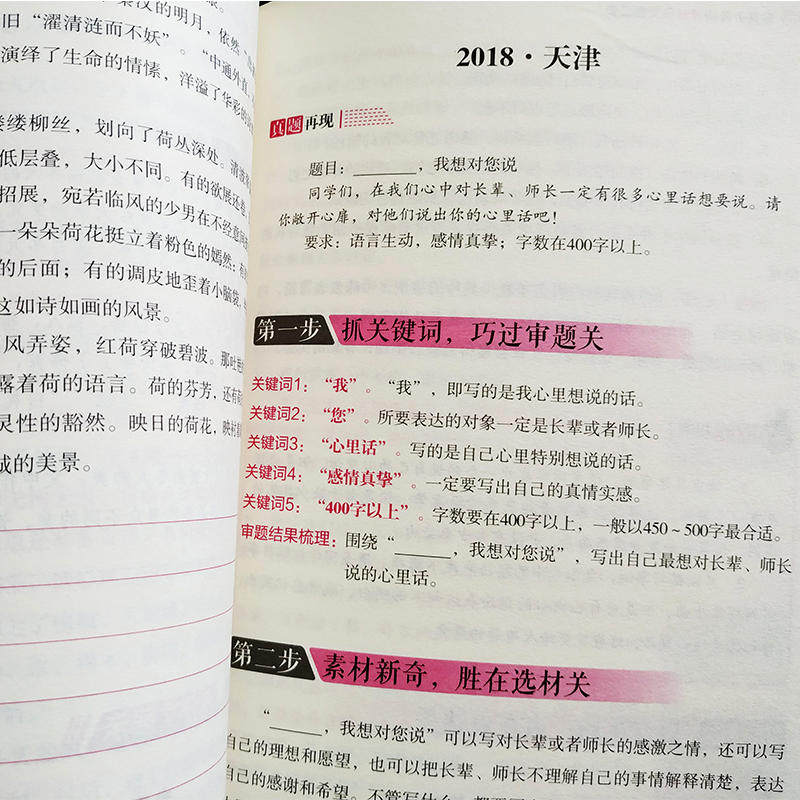 秦汉的明月，依然
旧“濯清涟而不妖”。“中通外直
演绎了生命的情愫，洋溢了华彩的
缕缕柳丝，划向了荷丛深处。清波
低层叠，大小不同。有的欲展还卷
招展，宛若临风的少男在不经意间
一朵朵荷花挺立着粉色的嫣然：有
的后面；有的调皮地歪着小脑袋，
这如诗如画的风景。
风弄姿，红荷穿破碧波。那吐艳
露着荷的语言。荷的芬芳，还有荷
灵性的豁然。映日的荷花，映衬
成的美景。
2018·天津
真题再现
题目：______，我想对您说
同学们，在我们心中对长辈、师长一定有很多心里话想要说。请
你敞开心扉，对他们说出你的心里话吧！
要求：语言生动，感情真挚；字数在400字以上。
第一步 抓关键词，巧过审题关
关键词1：“我”。“我”，即写的是我心里想说的话。
关键词2：“您”。所要表达的对象一定是长辈或者师长。
关键词3：“心里话”。写的是自己心里特别想说的话。
关键词4：“感情真挚”。一定要写出自己的真情实感。
关键词5：“400字以上”。字数要在400字以上，一般以450～500字最合适。
审题结果梳理：围绕“______，我想对您说”，写出自己最想对长辈、师长
说的心里话。
第二步 素材新奇，胜在选材关
“______，我想对您说”可以写对长辈或者师长的感激之情，还可以写
自己的理想和愿望，也可以把长辈、师长不理解自己的事情解释清楚，表达
自己的感谢和希望。不管写什么，都要